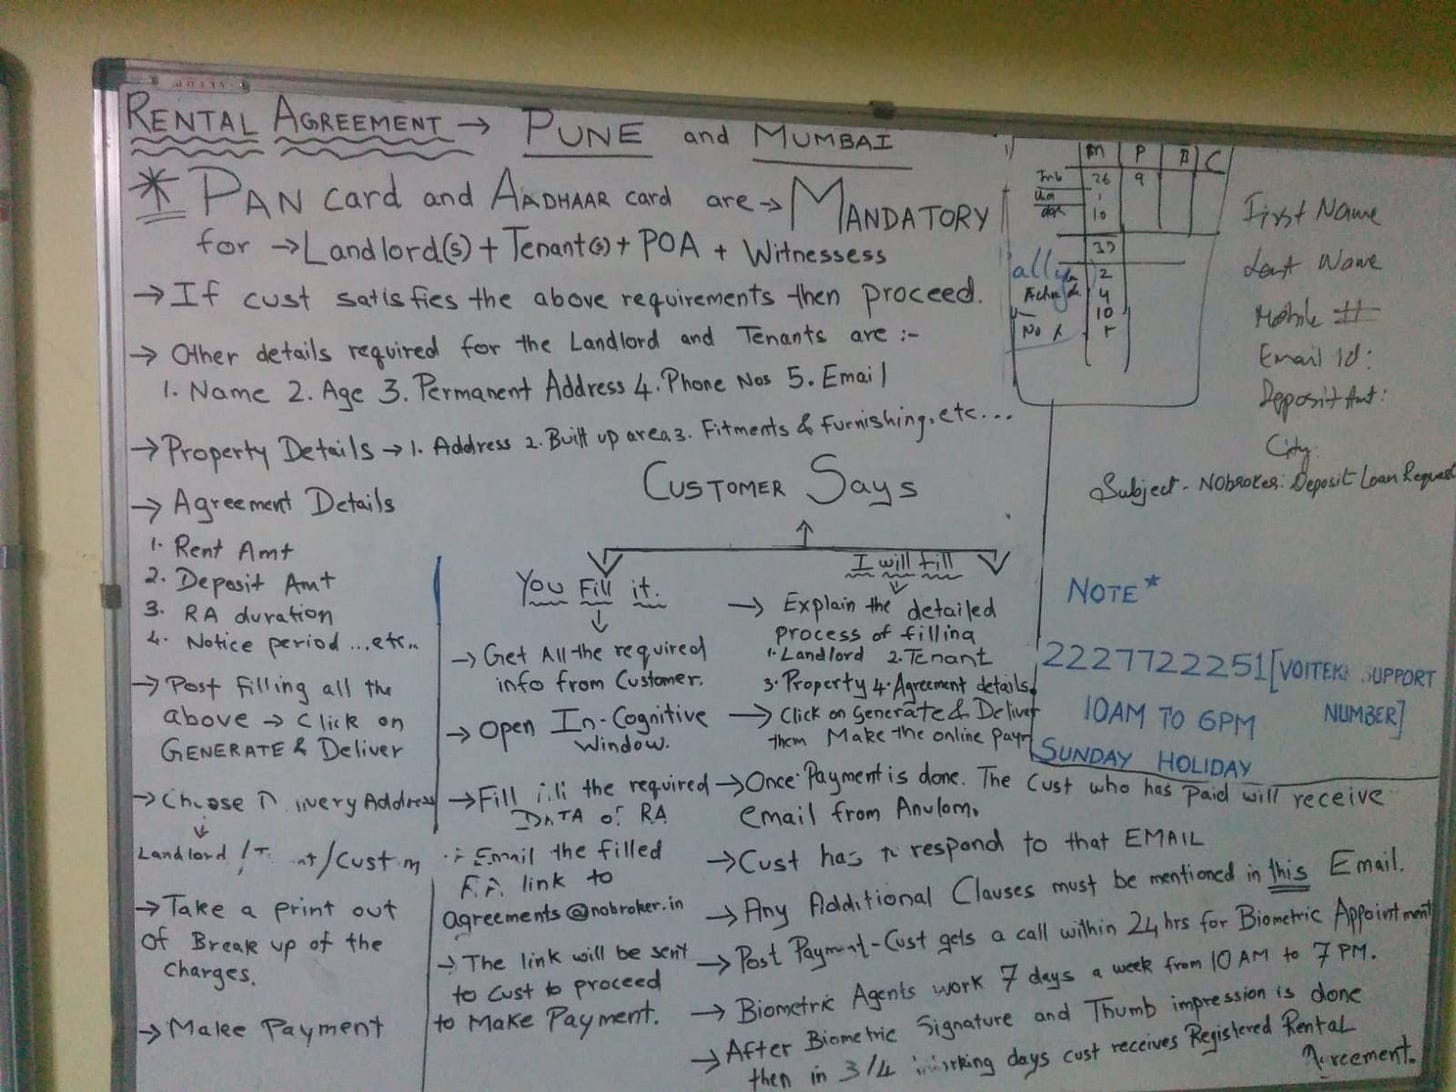 RENTAL AGREEMENT → PUNE and MUMBAI
* PAN card and AADHAAR card are → MANDATORY
for → Landlord(s) + Tenant(s) + POA + Witnessess
→ If cust satisfies the above requirements then proceed.
→ Other details required for the Landlord and Tenants are :-
1. Name 2. Age 3. Permanent Address 4. Phone Nos 5. Email
→ Property Details → 1. Address 2. Built up area 3. Fitments & Furnishing, etc...
→ Agreement Details
1. Rent Amt
2. Deposit Amt
3. RA duration
4. Notice period ...etc..
→ Post filling all the
above → Click on
GENERATE & Deliver
→ Choose Address
↓
Landlord /
→ Take a print out
of Break up of the
charges.
→ Make Payment
CUSTOMER Says
You Fill it.
↓
→ Get All the required
info from Customer.
→ Open In-Cognitive
Window.
→ Fill the required
DATA of RA
Email the filled
link to
agreements@nobroker.in
→ The link will be sent
to Cust to proceed
to Make Payment.
I will fill
→ Explain the detailed
process of filling
1. Landlord 2. Tenant
3. Property 4. Agreement details.
→ Click on Generate & Deliver
them Make the online
→ Once Payment is done. The Cust who has paid will receive
email from Anulom.
→ Cust has respond to that EMAIL
→ Any Additional Clauses must be mentioned in this Email.
→ Post Payment - Cust gets a call within 24 hrs for Biometric Appointment
→ Biometric Agents work 7 days a week from 10 AM to 7 PM.
→ After Biometric Signature and Thumb impression is done
then in 3/4 working days cust receives Registered Rental
Agreement.
M P B C
26 9
10
2
4
10
No
First Name
Last Name
Mobile #
Email Id:
Deposit Amt:
City:
Subject - NObroker: Deposit Loan Request
NOTE*
2227722251 [ SUPPORT
10AM TO 6PM NUMBER]
SUNDAY HOLIDAY